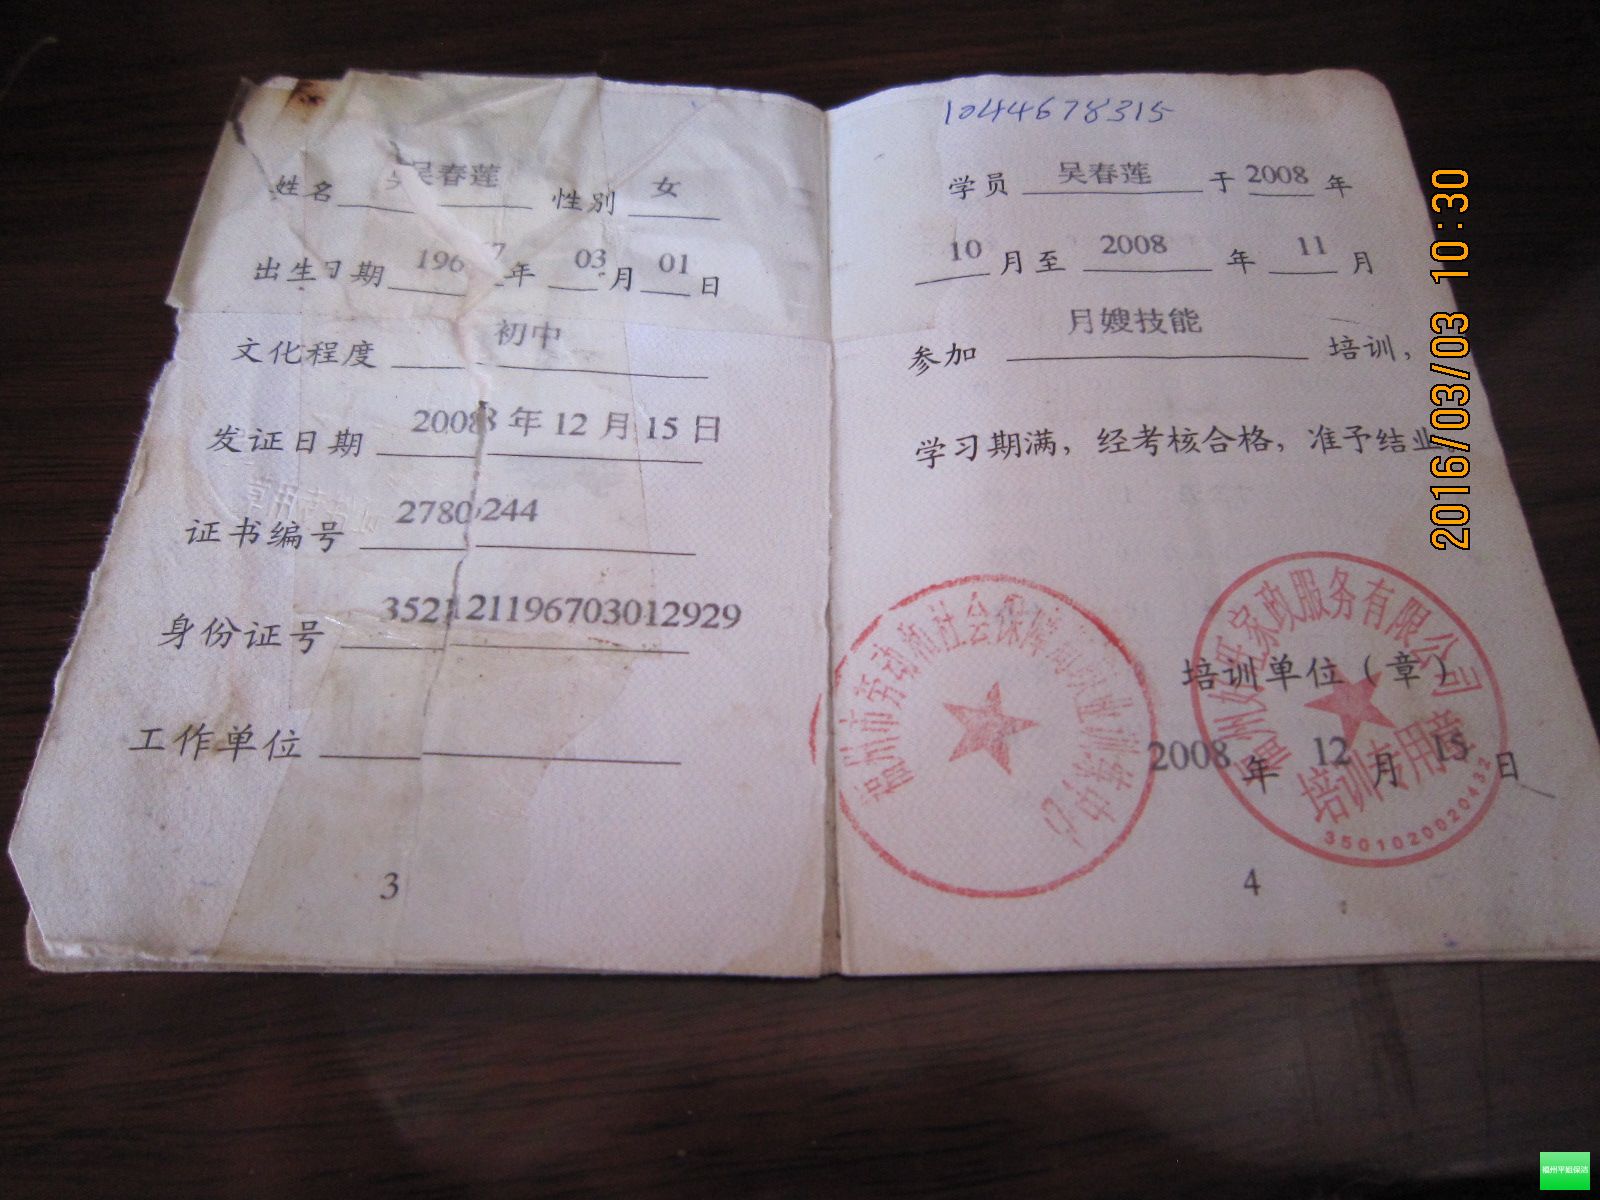 姓名 吴春莲 性别 女
出生日期 1967 年 03 月 01 日
文化程度 初中
发证日期 2008 年 12 月 15 日
证书编号 2780244
身份证号 352121196703012929
工作单位
3
1044678315
学员 吴春莲 于 2008 年
10 月至 2008 年 11 月
参加 月嫂技能 培训,
学习期满,经考核合格,准予结业。
福州市劳动和社会保障局就业训练中心
福州好 家政服务有限公司
培训单位(章)
2008 年 12 月 15 日
培训专用章
3501020020432
4
2016/03/03 10:30
福州平姐保洁